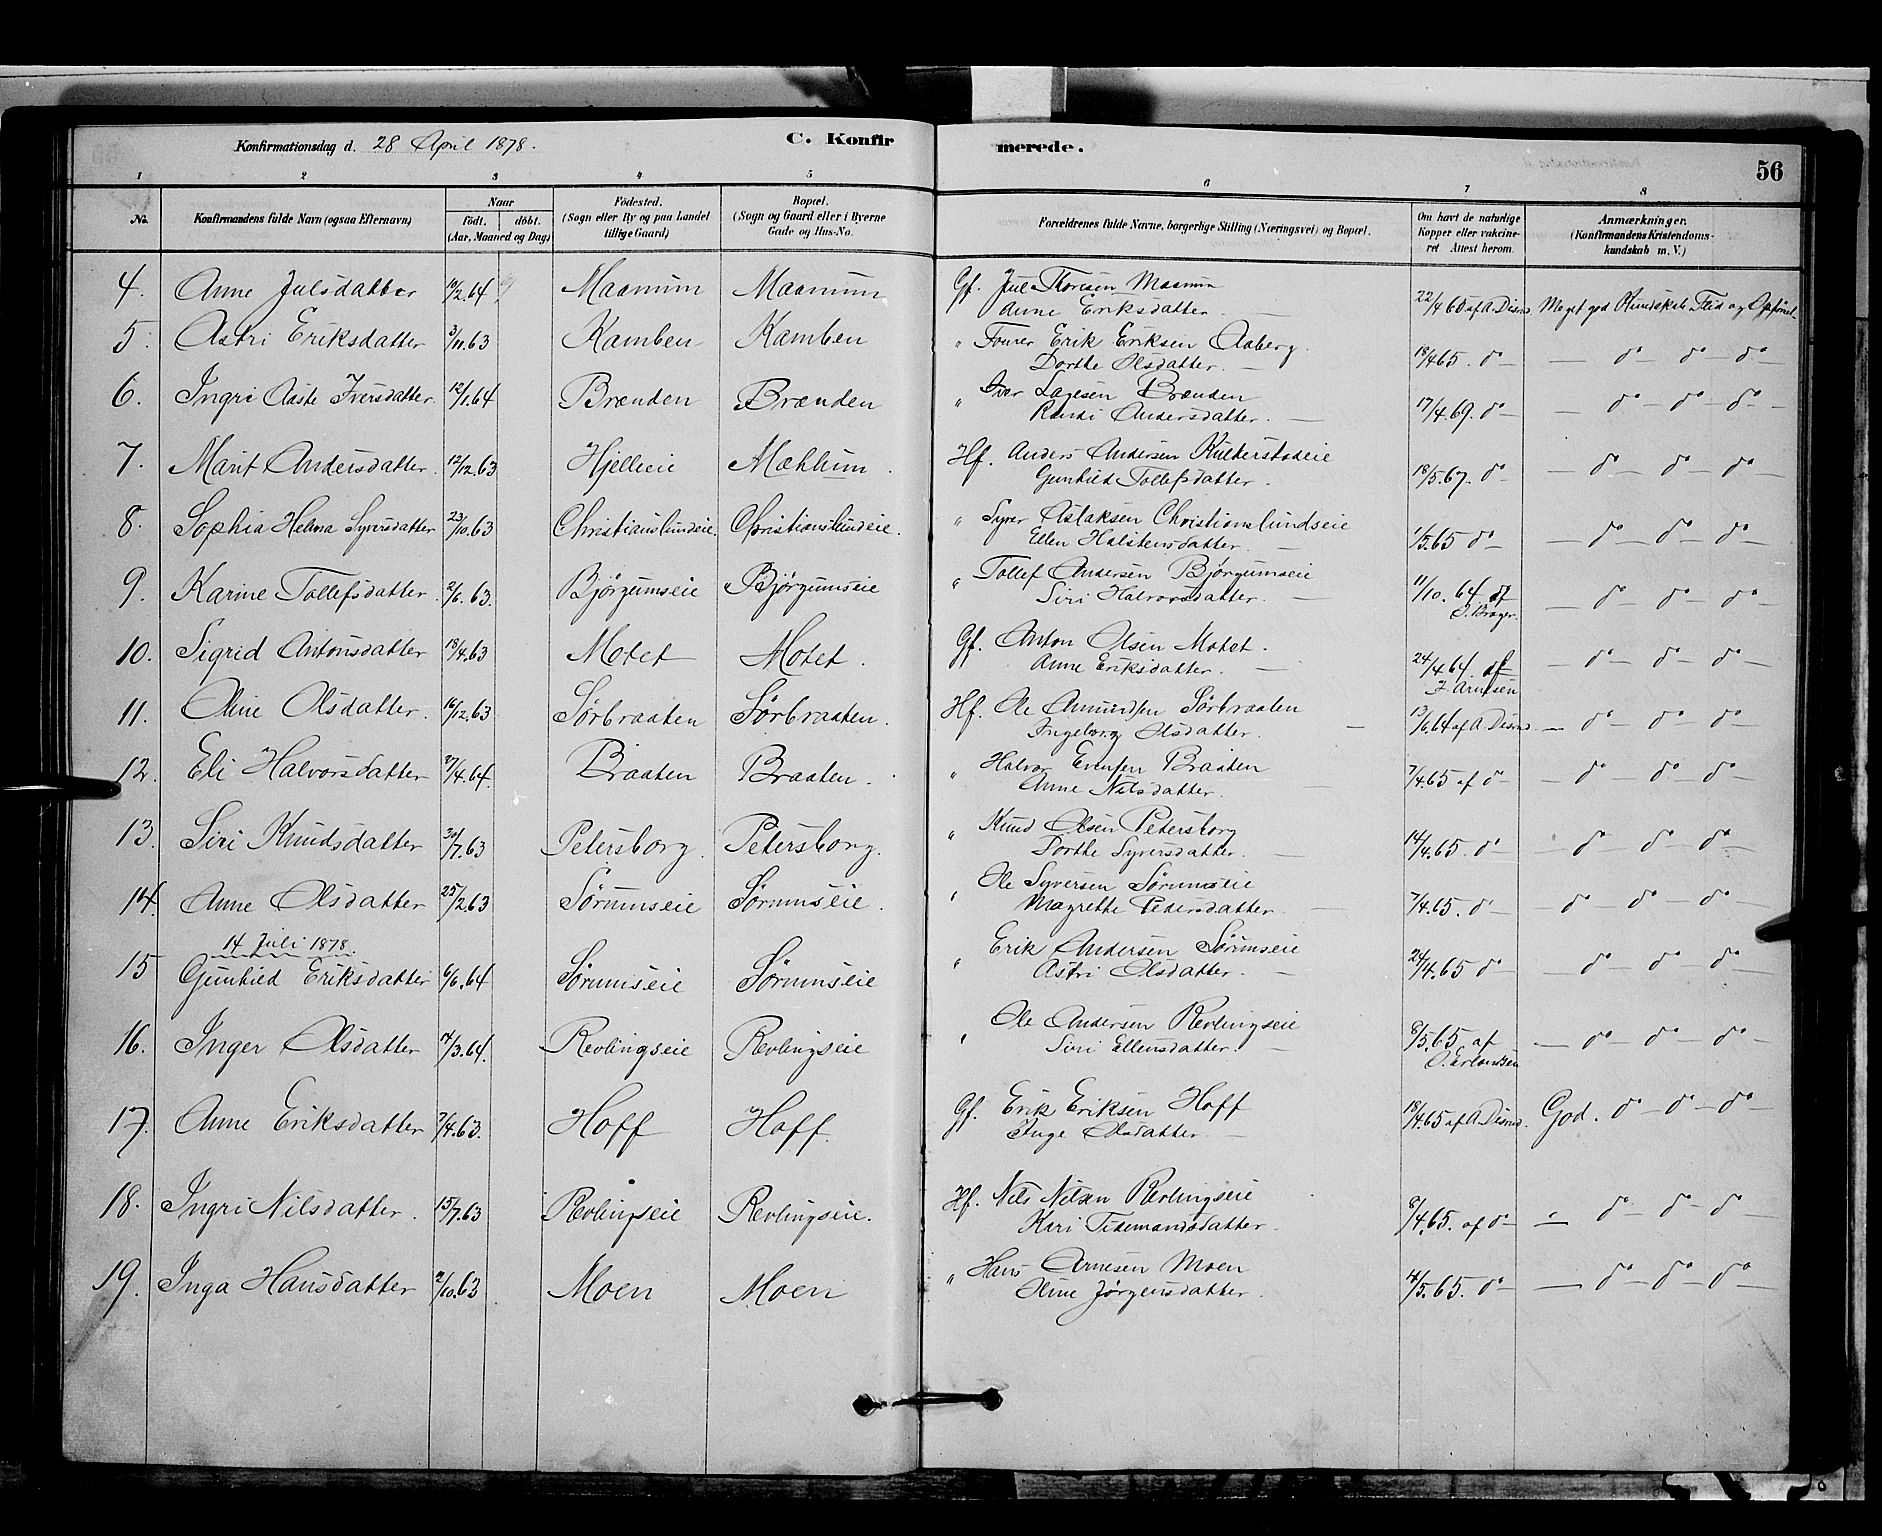 Konfirmationsdag d. 28 April 1878. C. Konfirmerede. 56
1 2 3 4 5 6 7 8
No. Konfirmandens fulde Navn (ogsaa Efternavn) Naar født. døbt. (Aar, Maaned og Dag) Fødested. (Sogn eller By og paa Landet tillige Gaard) Bopæl. (Sogn og Gaard eller i Byerne Gade og Hus-No. Forældrenes fulde Navne, borgerlige Stilling (Næringsvei) og Bopæl. Om havt de naturlige Kopper eller vaccineret Attest herom. Anmærkninger. (Konfirmandens Kristendomskundskab m. V.)
4. Anne Julsdatter 10/2.64 Maanum Maanum Gf. Jul Thoresen Maanum
Anne Eriksdatter. 22/4 65 af A Disrud Meget god Kundskab Flid og Opførsel
5. Astri Eriksdatter 3/11.63 Kamben Kamben " Fourer Erik Eriksen Aaberg
Dorthe Olsdatter. 18/4 65. do — do — do — do
6. Ingri Aaste Iversdatter 12/1.64 Brænden Brænden " Iver Larsen Brænden
Randi Andersdatter. 17/4.69. do — do — do — do —
7. Marit Andersdatter. 12/12.63 Hjelleie Mæhlum. Hf. Anders Andersen Kulterstadeie
Gunhild Tollefsdatter. 18/5.67. do — do — do — do —
8. Sophia Helena Syversdatter 23/10.63 Christianslundeie. Christianslundeie. " Syver Aslaksen Christianslundseie
Ellen Halstensdatter. 1/5.65 do — do — do — do —
9. Karine Tollefsdatter. 2/6.63. Bjørgumseie Bjørgumseie " Tollef Andersen Bjørgumseie
Siri Halvorsdatter. 11/10.64 af — do — do — do
10. Sigrid Antonsdatter 18/4.63 Motet Motet. Gf. Anton Olsen Motet.
Anne Eriksdatter. 24/4.64. af
J. Arntsen — do — do — do —
11. Oline Olsdatter. 16/12.63 Sørbraaten Sørbraaten. Hf. Ole Amundsen Sørbraaten
Ingeborg Olsdatter. 13/6.64 af A Disrud — do — do — do
12. Eli Halvorsdatter 27/4.64. Braaten Braaten. " Halvor Evensen Braaten
Anne Nilsdatter. 7/4.65 af do — do — do do —
13. Siri Knudsdatter 30/7.63 Petersborg. Petersborg. " Knud Olsen Petersborg
Dorthe Syversdatter. 14/4.65. do — do — do — do —
14. Anne Olsdatter 25/2.63 Sørumseie Sørumseie. " Ole Syversen Sørumseie
Magrethe Pedersdatter 7/4.65. do — do — do — do —
14 Juli 1878.
15 Gunhild Eriksdatter 6/6.64 Sørumseie Sørumseie " Erik Andersen Sørumseie
Astri Olsdatter. 24/4.65 do — do — do — do —
16. Inger Olsdatter 14/3.64. Revlingseie Revlingseie " Ole Andersen Revlingseie
Siri Ellensdatter. 8/5.65 af
O. Erlandsen — do — do — do —
17. Anne Eriksdatter 7/4.63. Hoff Hoff. Gf. Erik Eriksen Hoff
Inge Olsdatter. 18/4.65 af A Disrud. God. do — do — do —
18. Ingri Nilsdatter. 15/7.63 Revlingseie Revlingseie. Hf. Nils Nilsen Revlingseie
Kari Tidemandsdatter. 8/4.65. af do — do — do — do —
19. Inga Hansdatter 2/10.63 Moen Moen " Hans Arnesen Moen
Oline Jørgensdatter. 14/5.65. do — do — do — do —